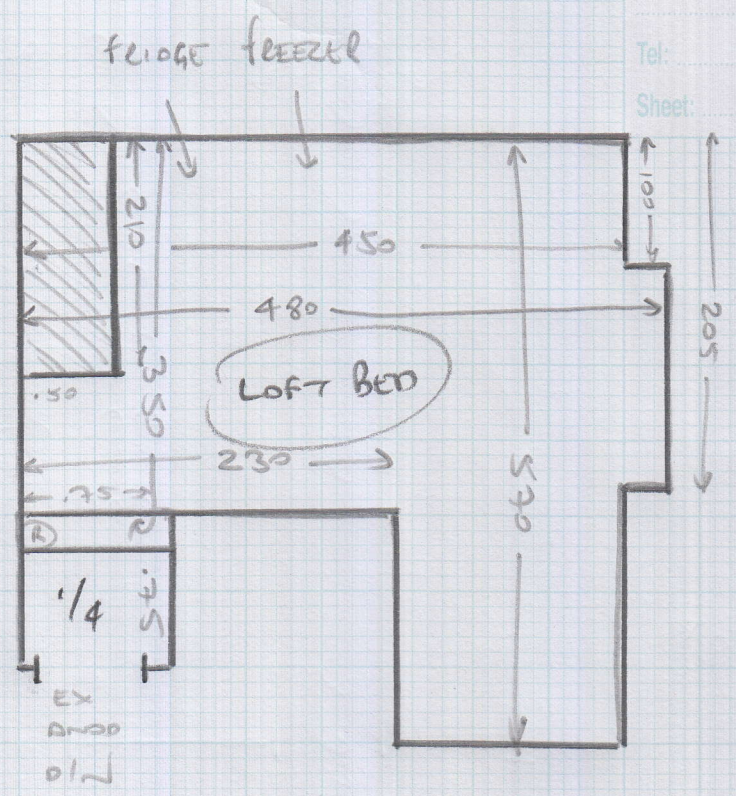 Tel:
Sheet:
FRIDGE FREEZER
210
100
450
480
205
350
LOFT BED
.50
230
570
.75
R
.75
1/4
EX